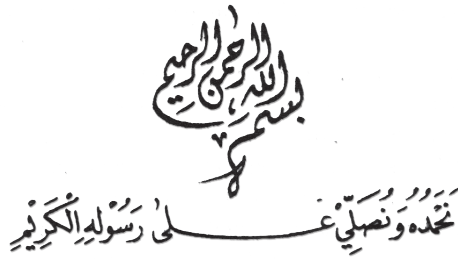 بسم الله الرحمن الرحيم
نَحْمَدُهُ وَنُصَلِّيْ عَلىٰ رَسُوْلِهِ الْكَرِيْمِ